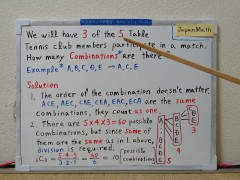 JapanMath
We will have 3 of the 5 Table
Tennis club members participate in a match.
How many Combinations are there
Example A, B, C, D, E → A, C, E
Solution
1. The order of the combination doesn't matter.
ACE, AEC, CAE, CEA, EAC, ECA are the same
combinations, they count as one.
2. There are 5×4×3=60 possible
combinations, but since some of
them are the same as in 1 above,
division is required.
5C3 = 5·4·3/3·2·1 = 60/6 = 10 possible
combinations
A B C D E
B C D E
C D E
5 4 3